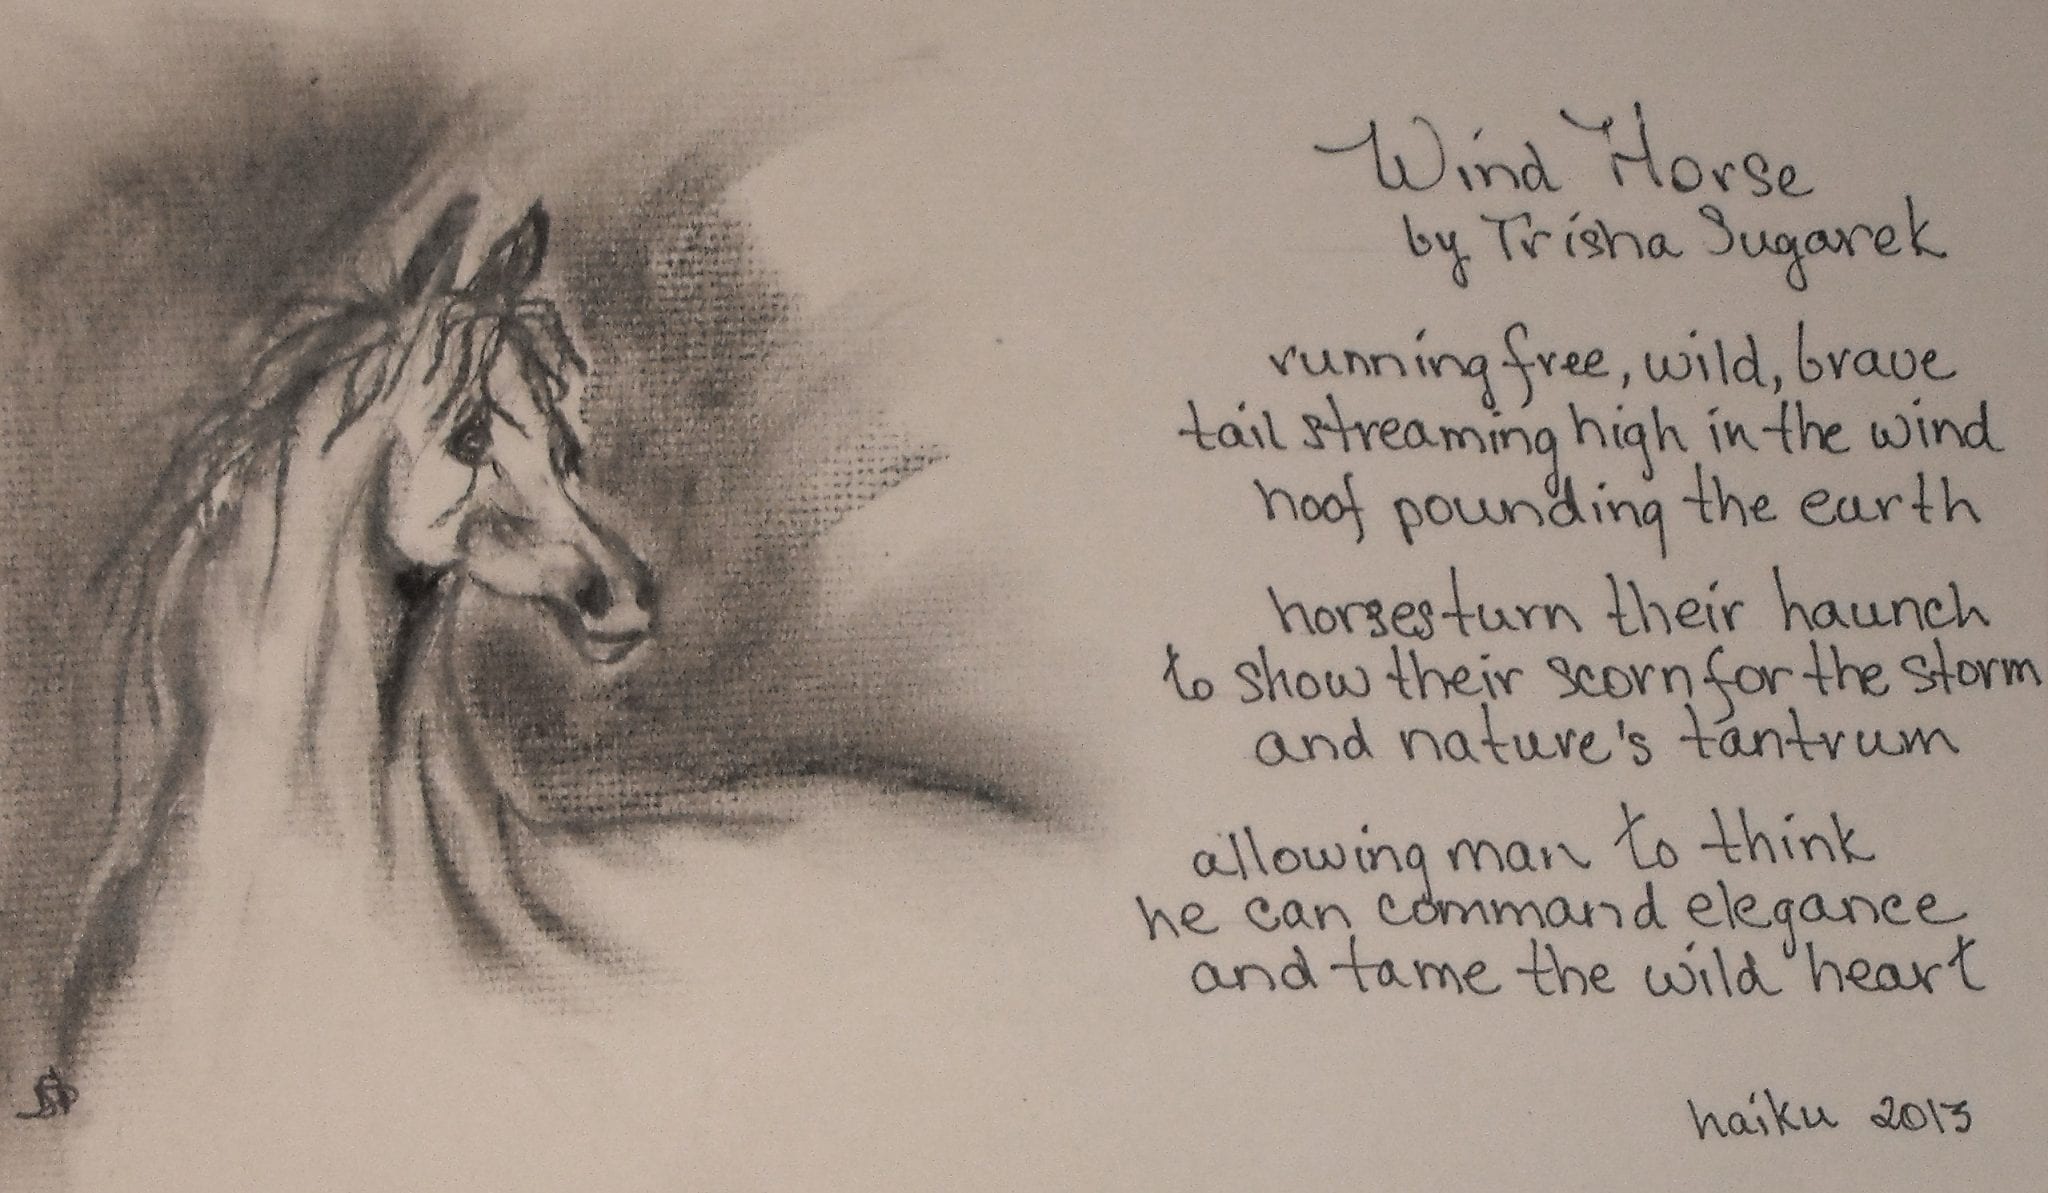 Wind Horse
by Trisha Sugarek
running free, wild, brave
tail streaming high in the wind
hoof pounding the earth
horses turn their haunch
to show their scorn for the storm
and nature's tantrum
allowing man to think
he can command elegance
and tame the wild heart
haiku 2013